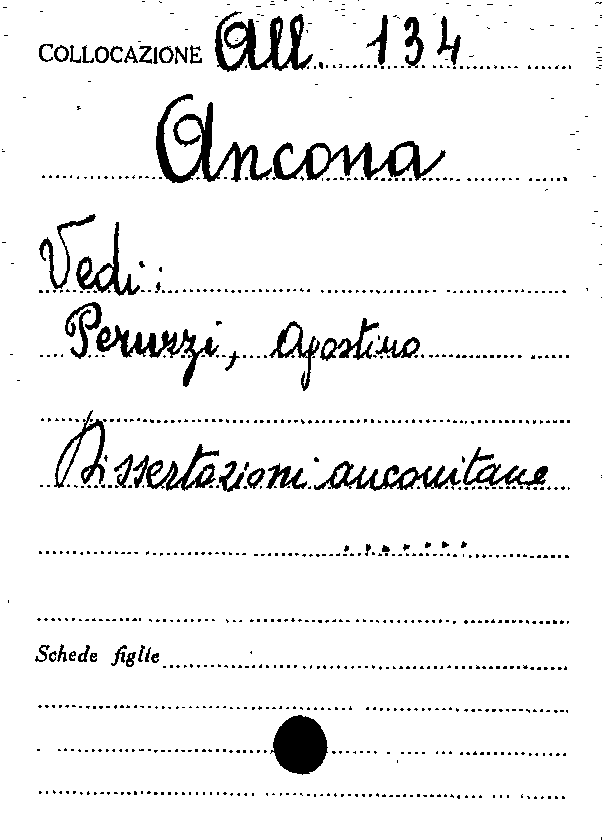 COLLOCAZIONE All. 134
Ancona
Vedi:
Peruzzi, Agostino
Dissertazioni anconitane
.......
Schede figlie